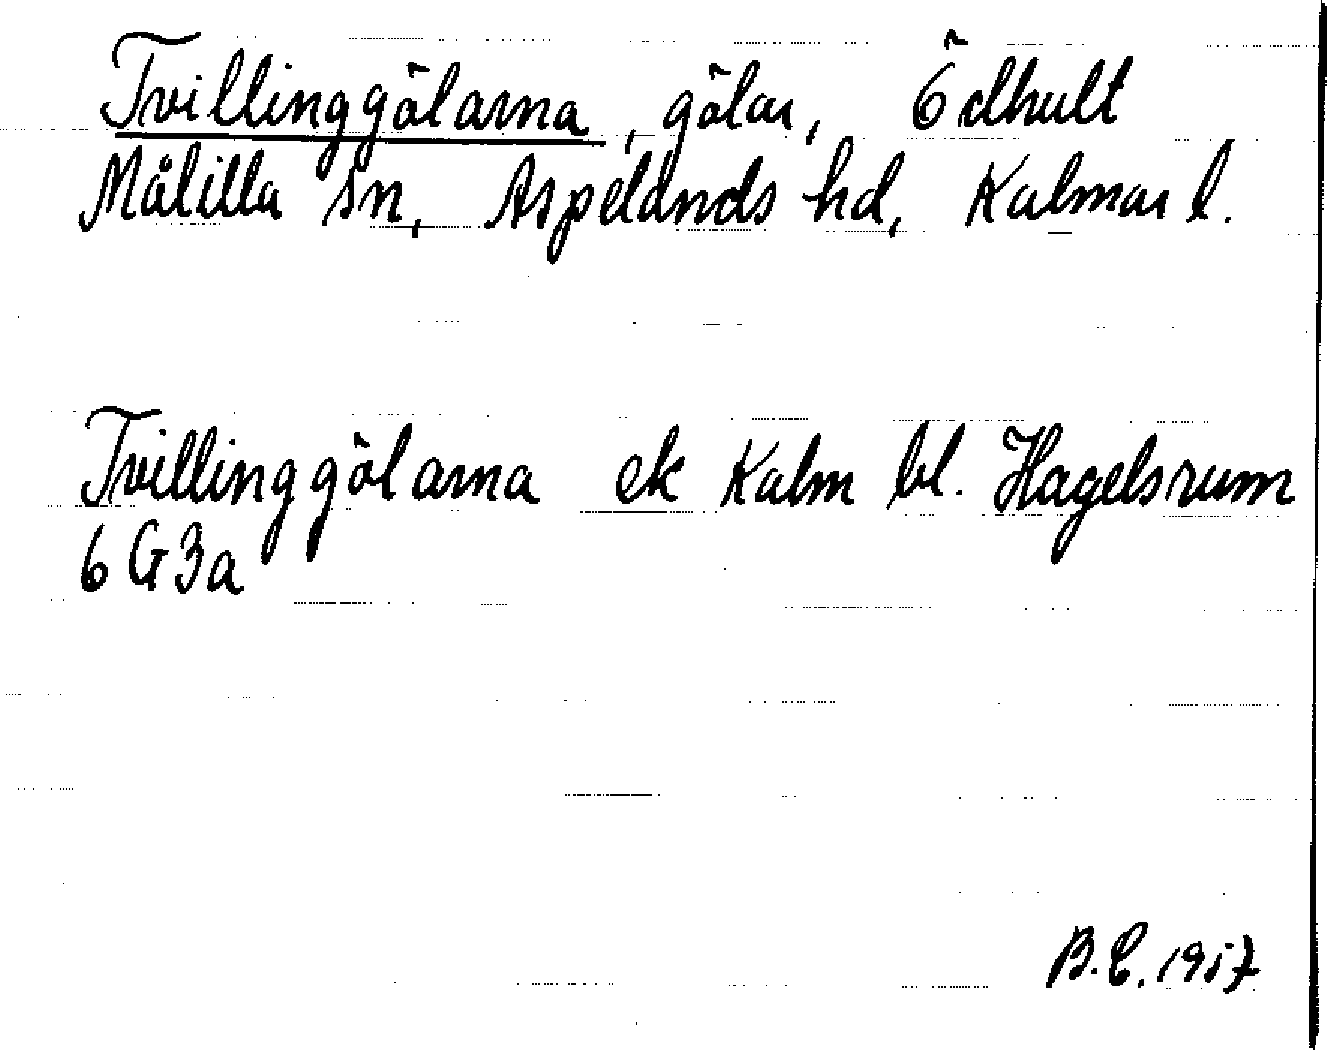 Tvillinggölarna, gölar, Ödhult
Målilla sn, Aspelands hd, Kalmar l.
Tvillinggölarna ek Kalm bl. Hagelsrum
6 G 3a
B.C. 1957